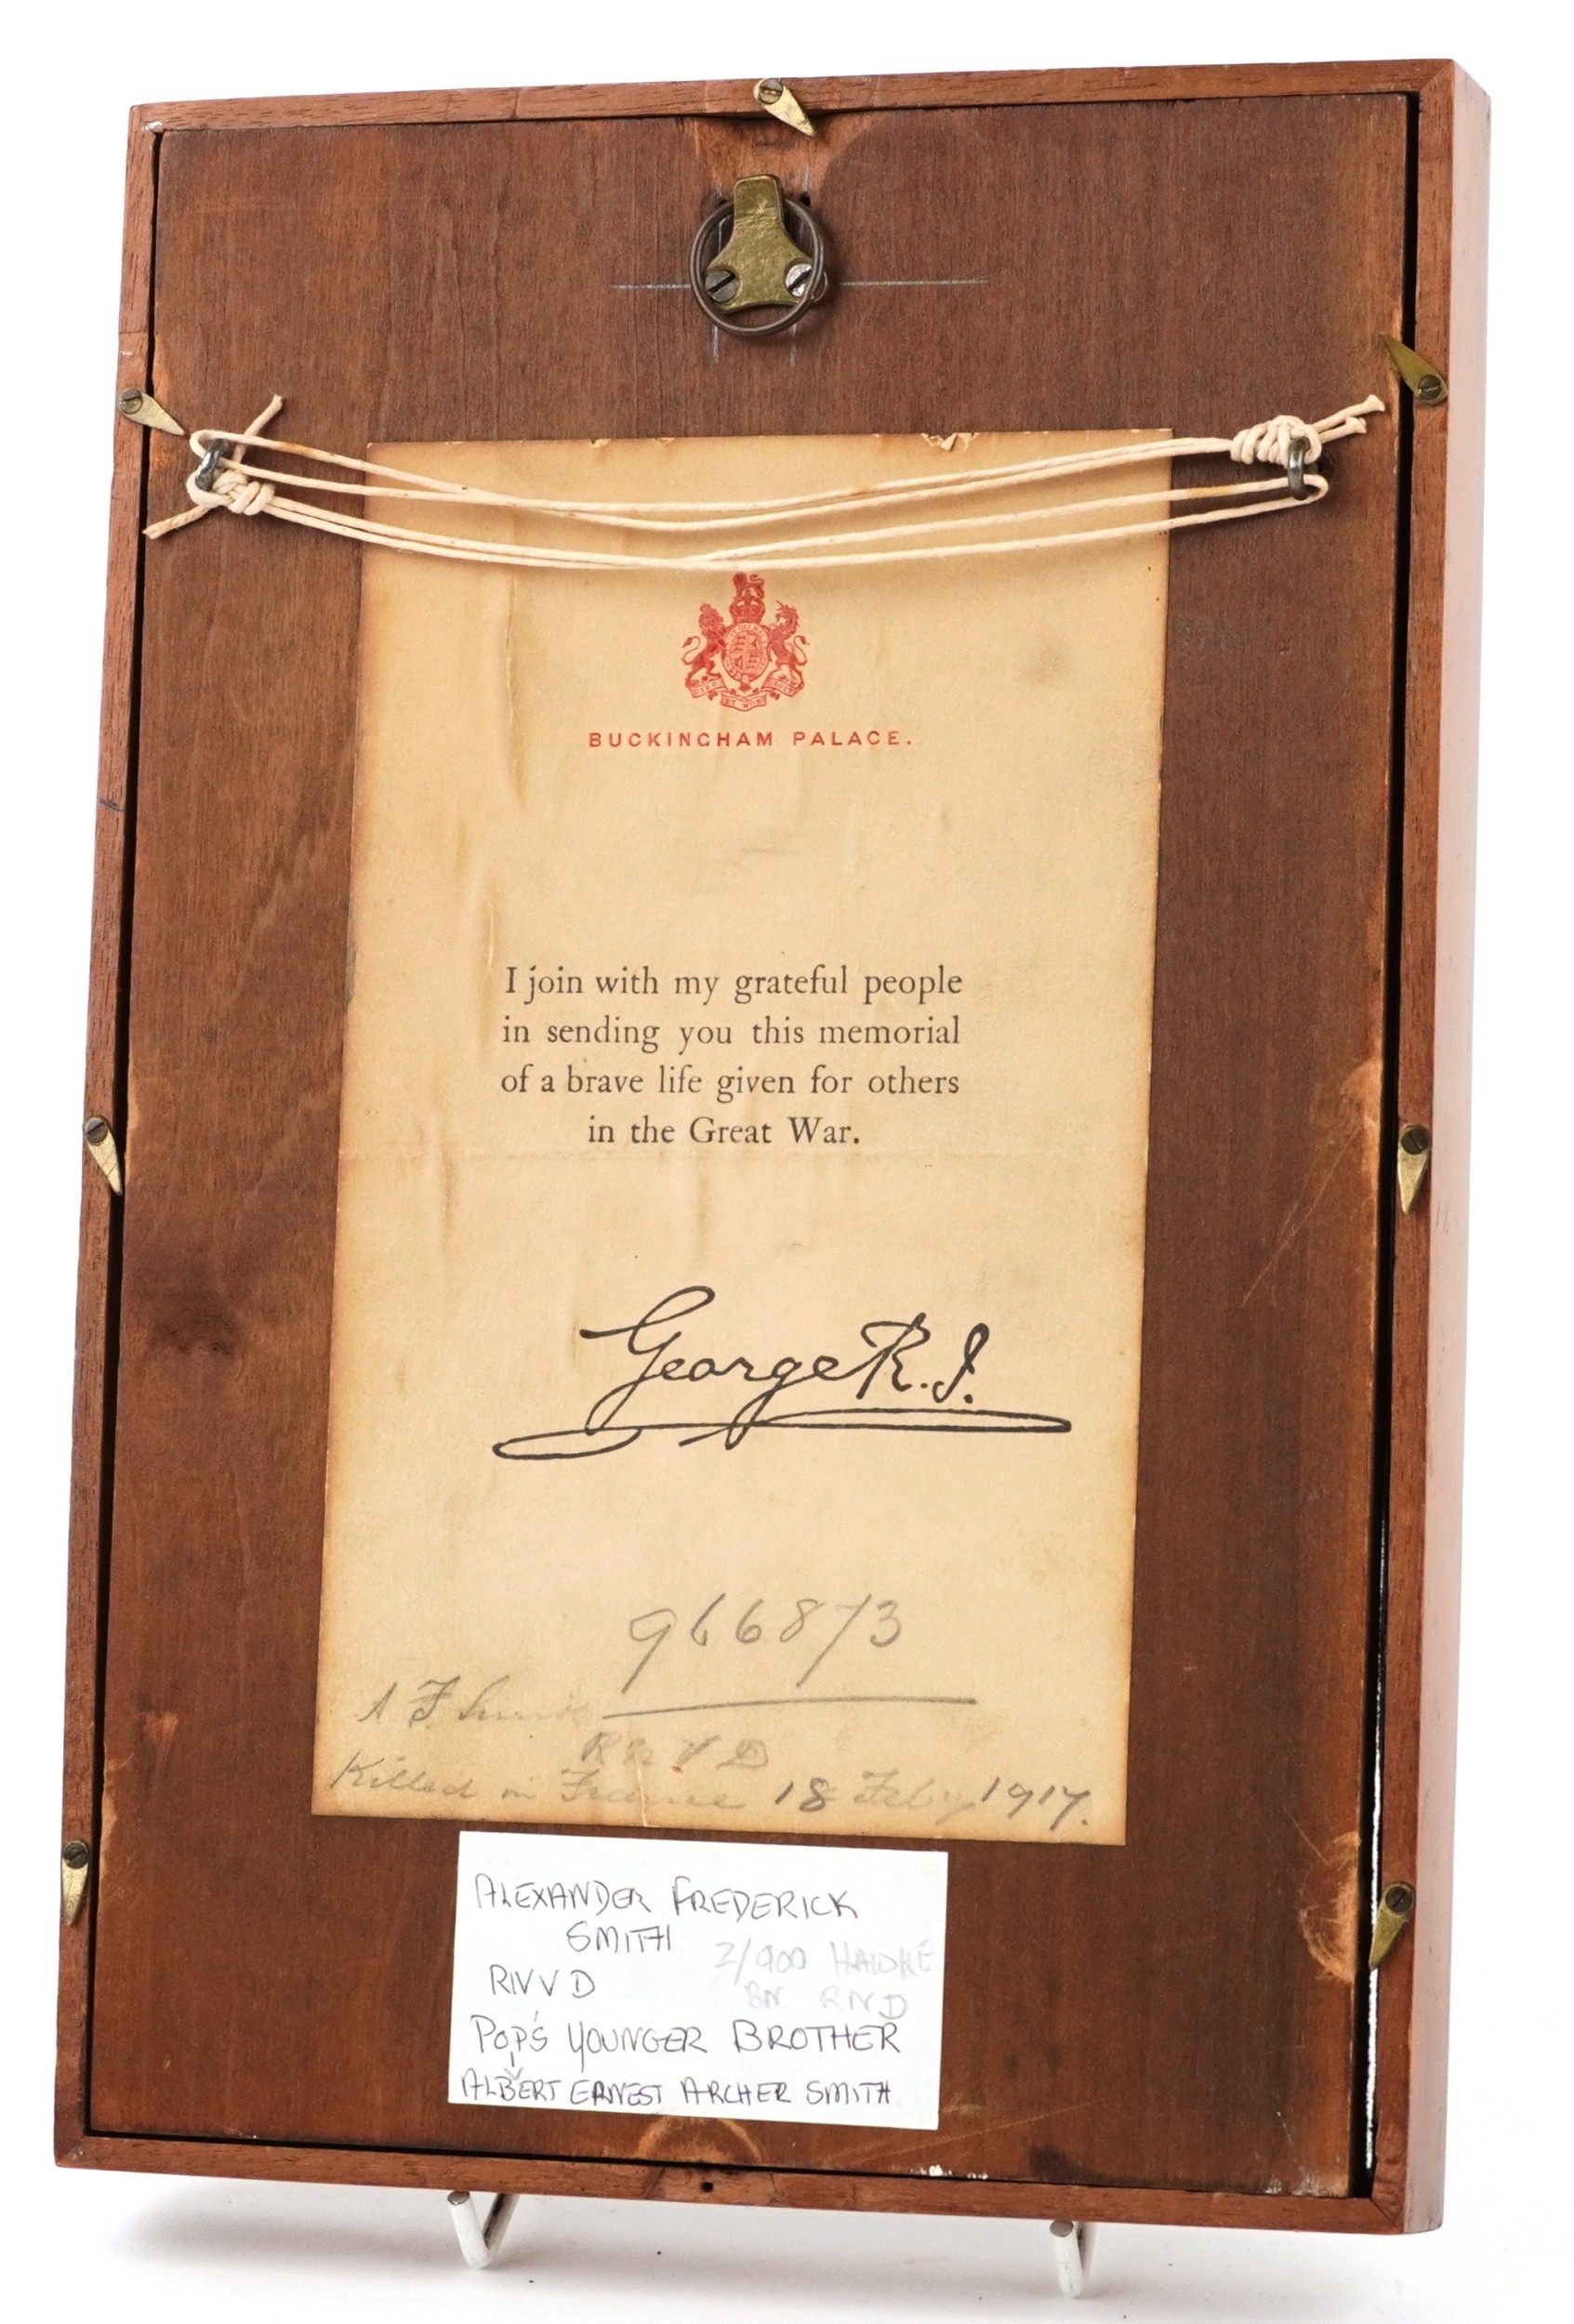 BUCKINGHAM PALACE.
I join with my grateful people
in sending you this memorial
of a brave life given for others
in the Great War.
George R.I.
966873
A F Smith
R N V D
Killed in France 18 Feby 1917.
ALEXANDER FREDERICK
SMITH
2/900 HAWKE
RNVD
BN. RND
POP'S YOUNGER BROTHER
ALBERT ERNEST ARCHER SMITH